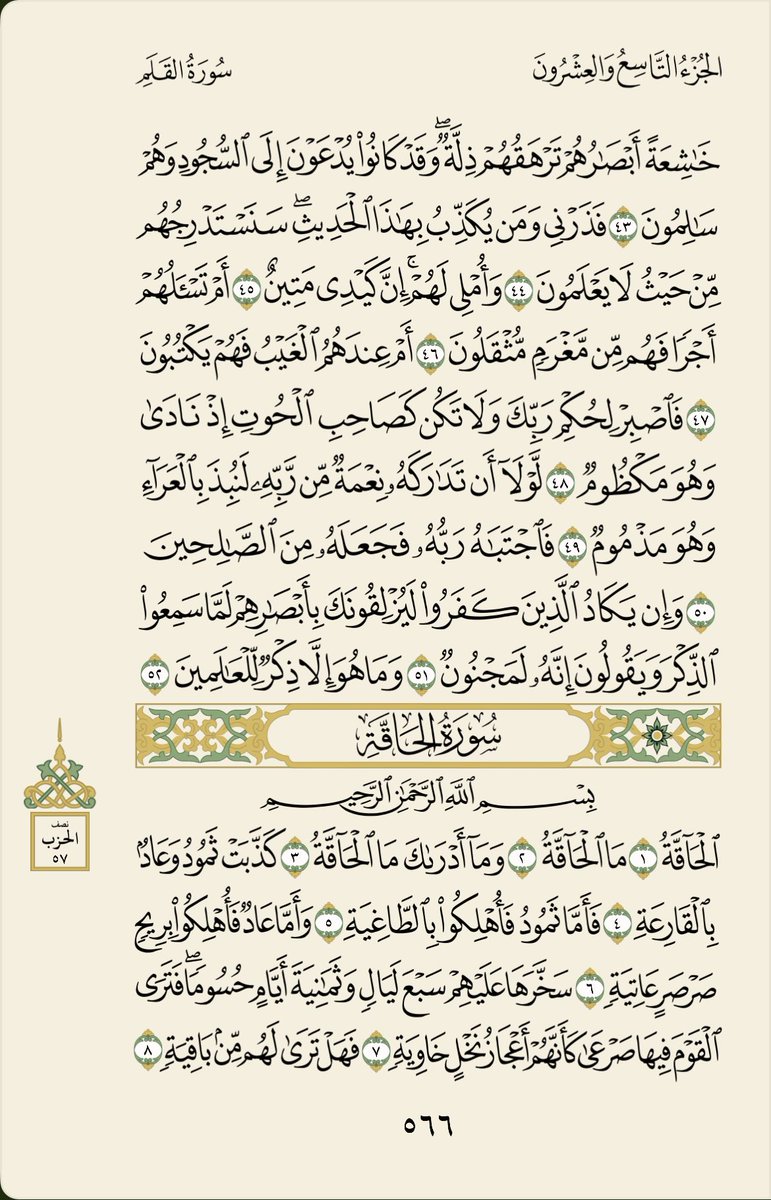 الجُزْءُ التَّاسِعُ وَالعِشْرُونَ
سُورَةُ القَلَمِ
خَٰشِعَةً أَبْصَٰرُهُمْ تَرْهَقُهُمْ ذِلَّةٞۖ وَقَدْ كَانُواْ يُدْعَوْنَ إِلَى ٱلسُّجُودِ وَهُمْ
سَٰلِمُونَ ٤٣ فَذَرْنِي وَمَن يُكَذِّبُ بِهَٰذَا ٱلْحَدِيثِۖ سَنَسْتَدْرِجُهُم
مِّنْ حَيْثُ لَا يَعْلَمُونَ ٤٤ وَأُمْلِي لَهُمْۚ إِنَّ كَيْدِي مَتِينٌ ٤٥ أَمْ تَسْـَٔلُهُمْ
أَجْرٗا فَهُم مِّن مَّغْرَمٖ مُّثْقَلُونَ ٤٦ أَمْ عِندَهُمُ ٱلْغَيْبُ فَهُمْ يَكْتُبُونَ
٤٧ فَٱصْبِرْ لِحُكْمِ رَبِّكَ وَلَا تَكُن كَصَاحِبِ ٱلْحُوتِ إِذْ نَادَىٰ
وَهُوَ مَكْظُومٞ ٤٨ لَّوْلَآ أَن تَدَٰرَكَهُۥ نِعْمَةٞ مِّن رَّبِّهِۦ لَنُبِذَ بِٱلْعَرَآءِ
وَهُوَ مَذْمُومٞ ٤٩ فَٱجْتَبَٰهُ رَبُّهُۥ فَجَعَلَهُۥ مِنَ ٱلصَّٰلِحِينَ
٥٠ وَإِن يَكَادُ ٱلَّذِينَ كَفَرُواْ لَيُزْلِقُونَكَ بِأَبْصَٰرِهِمْ لَمَّا سَمِعُواْ
ٱلذِّكْرَ وَيَقُولُونَ إِنَّهُۥ لَمَجْنُونٞ ٥١ وَمَا هُوَ إِلَّا ذِكْرٞ لِّلْعَٰلَمِينَ ٥٢
سُورَةُ الحَاقَّةِ
بِسْمِ ٱللَّهِ ٱلرَّحْمَٰنِ ٱلرَّحِيمِ
ٱلْحَآقَّةُ ١ مَا ٱلْحَآقَّةُ ٢ وَمَآ أَدْرَىٰكَ مَا ٱلْحَآقَّةُ ٣ كَذَّبَتْ ثَمُودُ وَعَادُۢ
بِٱلْقَارِعَةِ ٤ فَأَمَّا ثَمُودُ فَأُهْلِكُواْ بِٱلطَّاغِيَةِ ٥ وَأَمَّا عَادٞ فَأُهْلِكُواْ بِرِيحٖ
صَرْصَرٍ عَاتِيَةٖ ٦ سَخَّرَهَا عَلَيْهِمْ سَبْعَ لَيَالٖ وَثَمَٰنِيَةَ أَيَّامٍ حُسُومٗاۖ فَتَرَى
ٱلْقَوْمَ فِيهَا صَرْعَىٰ كَأَنَّهُمْ أَعْجَازُ نَخْلٍ خَاوِيَةٖ ٧ فَهَلْ تَرَىٰ لَهُم مِّنۢ بَاقِيَةٖ ٨
نصف
الحزب
٥٧
٥٦٦